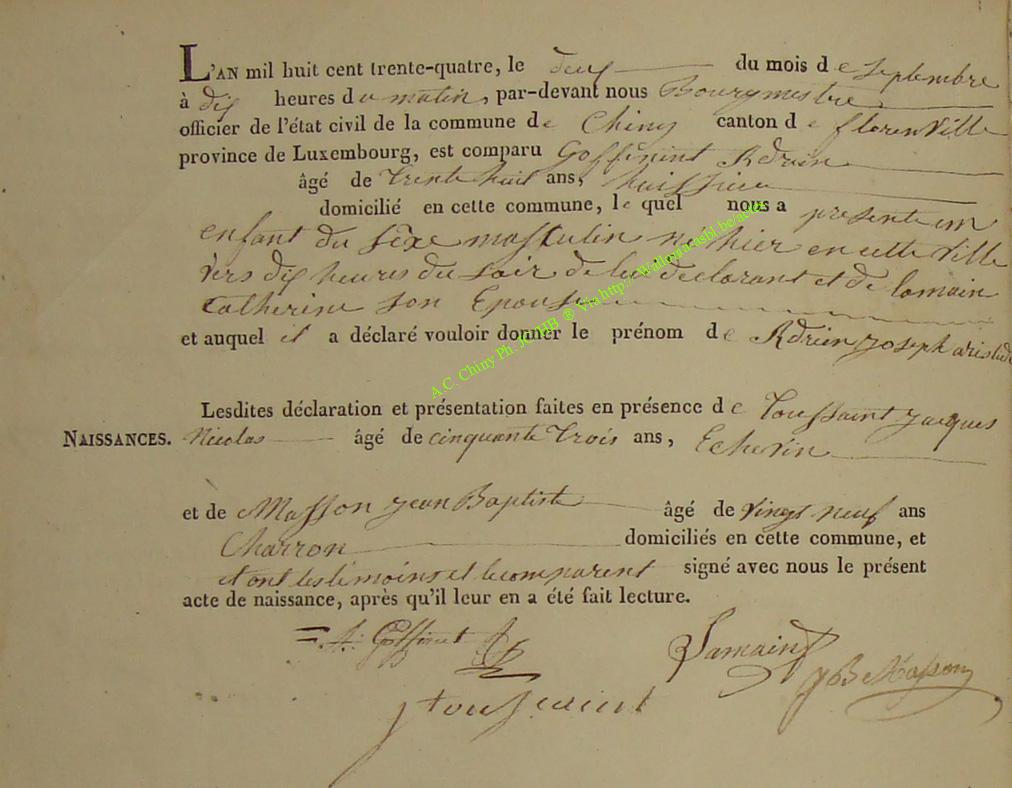 L'AN mil huit cent trente-quatre, le deux du mois de septembre
à dix heures du matin, par-devant nous Bourgmestre
officier de l'état civil de la commune de Chiny canton de florenville
province de Luxembourg, est comparu Goffinint Adrien
âgé de trente huit ans, huissier
domicilié en cette commune, le quel nous a presenté un
enfant du sexe masculin né hier en cette ville
vers dix heures du soir de lui déclarant et de
Catherine son Epouse
et auquel il a déclaré vouloir donner le prénom de Adrien joseph aristide
Lesdites déclaration et présentation faites en présence de Toussaint jacques
NAISSANCES. Nicolas âgé de cinquante trois ans, Echevin
et de Masson jean Baptiste âgé de vingt neuf ans
Charron domiciliés en cette commune, et
et ont les témoins et le comparent signé avec nous le présent
acte de naissance, après qu'il leur en a été fait lecture.
A: Goffinet
Lamain
JB Masson
j toussaint
A.C. Chiny Ph. JCMHB ® Via http://Wallonia-asbl.be/actes